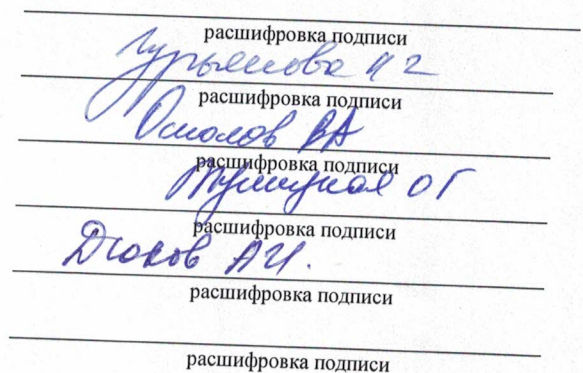 расшифровка подписи
Гурьянова Н Г
расшифровка подписи
Осмолов ВА
расшифровка подписи
ОГ
расшифровка подписи
Дюков АИ.
расшифровка подписи
расшифровка подписи